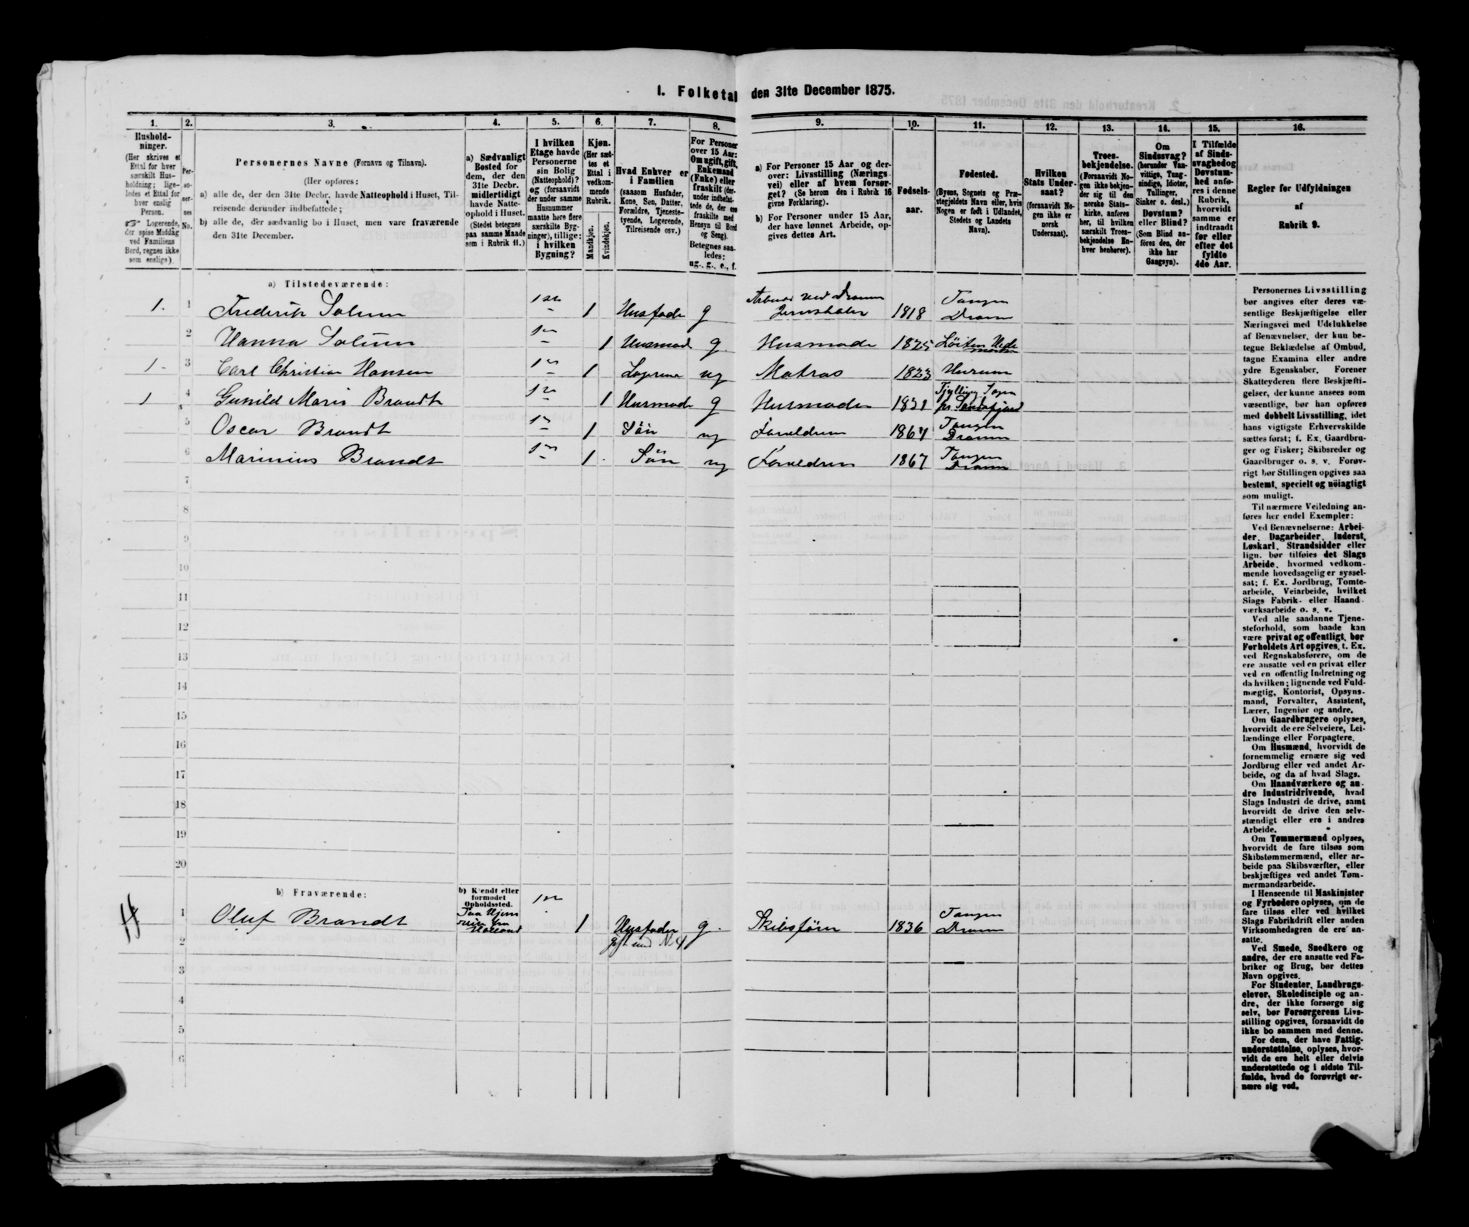 I. Folketal den 31te December 1875.
1. 2. 3. 4. 5. 6. 7. 8. 9. 10. 11. 12. 13. 14. 15. 16.
Husholdninger.
(Her skrives et Ettal for hver særskilt Husholdning; ligeledes et Ettal for hver enslig Person.
Logerende, der spise Middag ved Familiens Bord, regnes ikke som enslige).
Personernes No.
Personernes Navne (Fornavn og Tilnavn).
(Her opføres:
a) alle de, der den 31te Decbr. havde Natteophold i Huset, Tilreisende derunder indbefattede;
b) alle de, der sædvanlig bo i Huset, men vare fraværende den 31te December.
a) Sædvanligt Bosted for dem, der den 31te Decbr. midlertidigt havde Natteophold i Huset.
(Stedet betegnes paa samme Maade som i Rubrik 11.)
I hvilken Etage havde Personerne sin Bolig (Natteophold)? og (forsaavidt der under samme Husnummer maatte høre flere særskilte Bygninger), tillige: i hvilken Bygning?
Kjøn.
(Her sættes et Ettal i vedkommende Rubrik.
Mandkjøn. Kvindekjøn.
Hvad Enhver er i Familien
(saasom Husfader, Kone, Søn, Datter, Forældre, Tjenestetyende, Logerende, Tilreisende osv.)
For Personer over 15 Aar: Om ugift, gift, Enkemand (Enke) eller fraskilt
Betegnes saaledes:
ug., g., e., f.
a) For Personer 15 Aar og derover: Livsstilling (Næringsvei) eller af hvem forsørget? (Se herom den i Rubrik 16 givne Forklaring).
b) For Personer under 15 Aar, der have lønnet Arbeide, opgives dettes Art.
Fødselsaar.
Fødested.
(Byens, Sognets og Præstegjeldets Navn eller, hvis Nogen er født i Udlandet, Stedets og Landets Navn).
Hvilken Stats Undersaat?
(forsaavidt Nogen ikke er norsk Undersaat).
Troesbekjendelse.
(Forsaavidt Nogen ikke bekjender sig til den norske Statskirke, anføres her, til hvilken særskilt Troesbekjendelse Enhver henhører).
Om Sindssvag? (herunder Vanvittige, Tungsindige, Idioter, Tullinger, Sinker o. desl.) Døvstum? eller Blind?
(Som Blind anføres den, der ikke har Gangsyn).
I Tilfælde af Sindssvaghed og Døvstumhed anføres i denne Rubrik, hvorvidt samme er indtraadt før eller efter det fyldte 4de Aar.
Regler for Udfyldningen af Rubrik 9.
a) Tilstedeværende:
1. 1 Frederik Solum 1ste 1 Husfader g Arbeider ved Dramm Jernstøberi 1818 Tangen Dramm
2 Hanna Solum 1 Husmoder g Husmoder 1825
1. 3 Carl Christian Hansen 1 Logerende ug Matros 1823 Hurum
1 4 Gunild Maria Brandt 1 Husmoder g Husmoder 1831
5 Oscar Brandt 1 Søn ug Forældren 1864 Tangen Dramm
6 Marinius Brandt 1 Søn ug Forældren 1867 Tangen Dramm
7
8
9
10
11
12
13
14
15
16
17
18
19
20
b) Fraværende:
b) Kjendt eller formodet Opholdssted.
1 Oluf Brandt Paa Hjem Holland 1 Husfader gift med No 4 g. Skibsfører 1836 Tangen Dramm
2
3
4
5
6
Personernes Livsstilling bør angives efter deres væsentlige Beskjæftigelse eller Næringsvei med Udelukkelse af Benævnelser, der kun betegne Beklædelse af Ombud, tagne Examina eller andre ydre Egenskaber. Forener Skatteyderen flere Beskjæftigelser, der kunne ansees som væsentlige, bør han opføres med dobbelt Livsstilling, idet hans vigtigste Erhvervskilde sættes først; f. Ex. Gaardbruger og Fisker; Skibsreder og Gaardbruger o. s. v. Forøvrigt bør Stillingen opgives saa bestemt, specielt og nöiagtigt som muligt.
Til nærmere Veiledning anføres her endel Exempler:
Ved Benævnelserne: Arbeider, Dagarbeider, Inderst, Løskarl, Strandsidder eller lign. bør tilføies det Slags Arbeide, hvormed vedkommende hovedsagelig er sysselsat; f. Ex. Jordbrug, Tomtearbeide, Veiarbeide, hvilket Slags Fabrik- eller Haandværksarbeide o. s. v.
Ved alle saadanne Tjenesteforhold, som baade kan være privat og offentligt, bør Forholdets Art opgives, t. Ex. ved Regnskabsførere, om de ere ansatte ved en privat eller ved en offentlig Indretning og da hvilken; lignende ved Fuldmægtig, Kontorist, Opsynsmand, Forvalter, Assistent, Lærer, Ingeniør og andre.
Om Gaardbrugere oplyses, hvorvidt de ere Selveiere, Leilændinge eller Forpagtere.
Om Husmænd, hvorvidt de fornemmelig ernære sig ved Jordbrug eller ved andet Arbeide, og da af hvad Slags.
Om Haandværkere og andre Industridrivende, hvad Slags Industri de drive, samt hvorvidt de drive den selvstændigt eller ere i andres Arbeide.
Om Tømmermænd oplyses, hvorvidt de fare tilsøs som Skibstømmermænd, eller arbeide paa Skibsværfter, eller beskjæftiges ved andet Tømmermandsarbeide.
I Henseende til Maskinister og Fyrbødere oplyses, om de fare tilsøs eller ved hvilket Slags Fabrikdrift eller anden Virksomhedsgren de ere ansatte.
Ved Smede, Snedkere og andre, der ere ansatte ved Fabriker og Brug, bør dettes Navn opgives.
For Studenter, Landbrugselever, Skoledisciple og andre, der ikke forsørge sig selv, bør Forsørgerens Livsstilling opgives, forsaavidt de ikke bo sammen med denne.
For dem, der have Fattigunderstøttelse, oplyses, hvorvidt de ere helt eller delvis understøttede og i sidste Tilfælde, hvad de forøvrigt ernære sig ved.